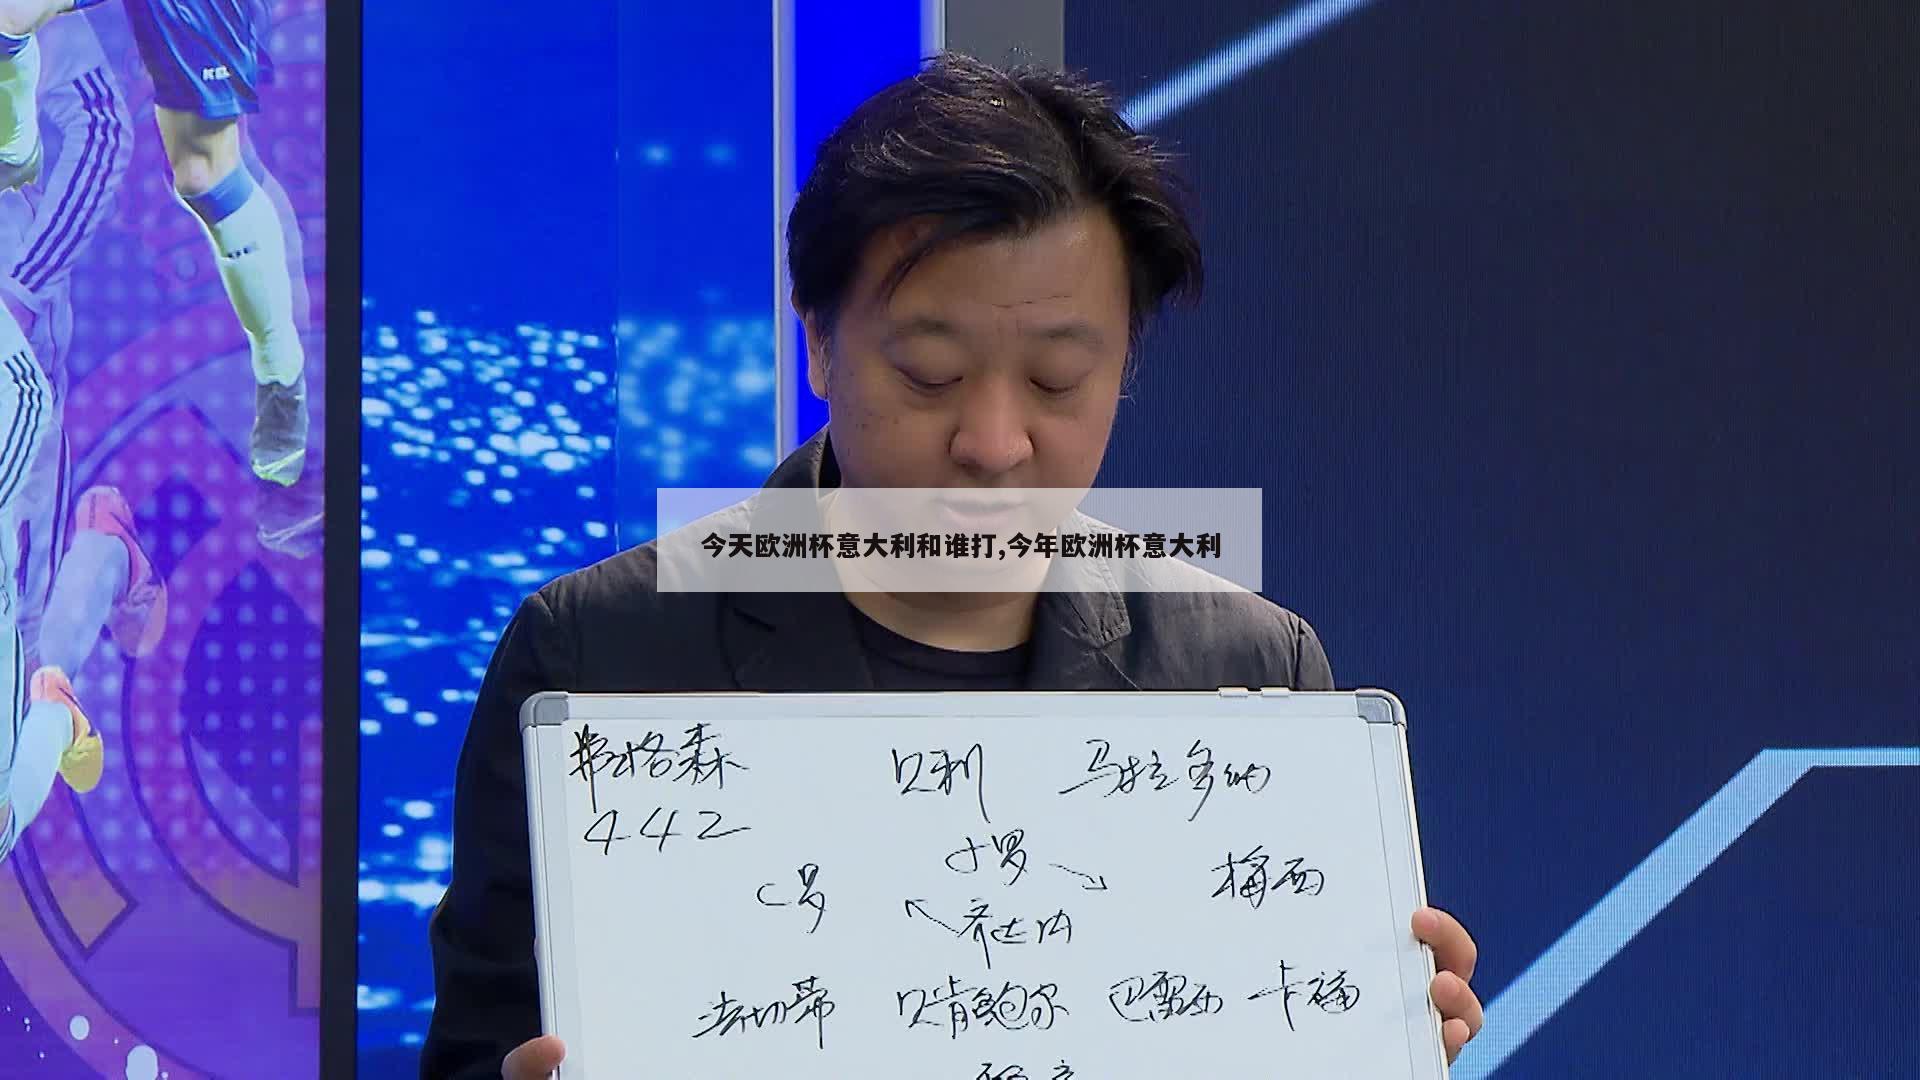 今天欧洲杯意大利和谁打,今年欧洲杯意大利
弗格森 贝利 马拉多纳
442
小罗
C罗 梅西
齐达内
法切蒂 贝肯鲍尔 巴雷西 卡福